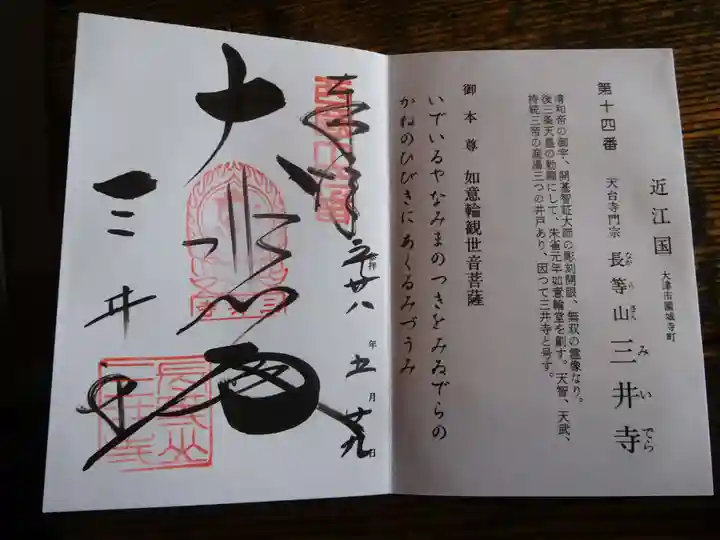 近江国 大津市園城寺町
第十四番 天台寺門宗 長等山 三井寺
ながらさん みいでら
清和帝の御宇、開基智証大師の彫刻開眼、無双の霊像なり。
後三条天皇の勅願にして、朱雀元年如意輪堂を創す。天智、天武、
持統三帝の産湯三つの井戸あり、因つて三井寺と号す。
御本尊 如意輪観世音菩薩
いでいるやなみまのつきをみゐでらの
かねのひびきにあくるみづうみ
奉拝
平廿八年五月廿九日
大悲殿
三井寺